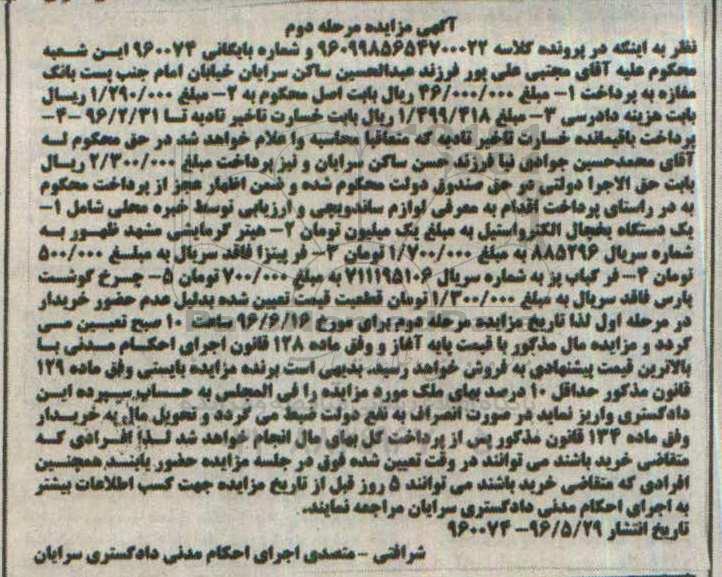 آگهی مزایده مرحله دوم
نظر به اینکه در پرونده کلاسه ۹۶۰۹۹۸۵۶۵۴۷۰۰۰۲۲ و شماره بایگانی ۹۶۰۰۷۴ این شعبه
محکوم علیه آقای مجتبی علی پور فرزند عبدالحسین ساکن سرایان خیابان امام جنب پست بانک
مغازه به پرداخت ۱- مبلغ ۴۶/۰۰۰/۰۰۰ ریال بابت اصل محکوم به ۲- مبلغ ۱/۲۹۰/۰۰۰ ریال
بابت هزینه دادرسی ۳- مبلغ ۱/۴۹۹/۴۱۸ ریال بابت خسارت تاخیر تادیه تا ۹۶/۲/۳۱ -۴-
پرداخت باقیمانده خسارت تاخیر تادیه که متعاقبا محاسبه واعلام خواهد شد در حق محکوم له
آقای محمدحسین جوادی نیا فرزند حسن ساکن سرایان و نیز پرداخت مبلغ ۲/۳۰۰/۰۰۰ ریال
بابت حق الاجرا دولتی در حق صندوق دولت محکوم شده و ضمن اظهار عجز از پرداخت محکوم
به در راستای پرداخت اقدام به معرفی لوازم ساندویچی و ارزیابی توسط خبره محلی شامل ۱-
یک دستگاه یخچال الکترواستیل به مبلغ یک میلیون تومان ۲- هیتر گرمایشی مشهد ظهور به
شماره سریال ۸۸۵۲۹۶ به مبلغ ۱/۷۰۰/۰۰۰ تومان ۳- فر پیتزا فاقد سریال به مبلغ ۵۰۰/۰۰۰
تومان ۴- فر کباب پز به شماره سریال ۷۱۱۱۹۵۱۰۶ به مبلغ ۷۰۰/۰۰۰ تومان ۵- چرخ گوشت
پارس فاقد سریال به مبلغ ۱/۳۰۰/۰۰۰ تومان قطعیت قیمت تعیین شده بدلیل عدم حضور خریدار
در مرحله اول لذا تاریخ مزایده مرحله دوم برای مورخ ۹۶/۶/۱۶ ساعت ۱۰ صبح تعیین می
گردد و مزایده مال مذکور با قیمت پایه آغاز و وفق ماده ۱۲۸ قانون اجرای احکام مدنی با
بالاترین قیمت پیشنهادی به فروش خواهد رسید. بدیهی است برنده مزایده بایستی وفق ماده ۱۲۹
قانون مذکور حداقل ۱۰ درصد بهای ملک مورد مزایده را فی المجلس به حساب سپرده این
دادگستری واریز نماید در صورت انصراف به نفع دولت ضبط می گردد و تحویل مال به خریدار
وفق ماده ۱۳۴ قانون مذکور پس از پرداخت کل بهای مال انجام خواهد شد لذا افرادی که
متقاضی خرید باشند می توانند در وقت تعیین شده فوق در جلسه مزایده حضور یابند. همچنین
افرادی که متقاضی خرید باشند می توانند ۵ روز قبل از تاریخ مزایده جهت کسب اطلاعات بیشتر
به اجرای احکام مدنی دادگستری سرایان مراجعه نمایند.
تاریخ انتشار ۹۶/۵/۲۹- ۹۶۰۰۷۴
شرافتی - متصدی اجرای احکام مدنی دادگستری سرایان